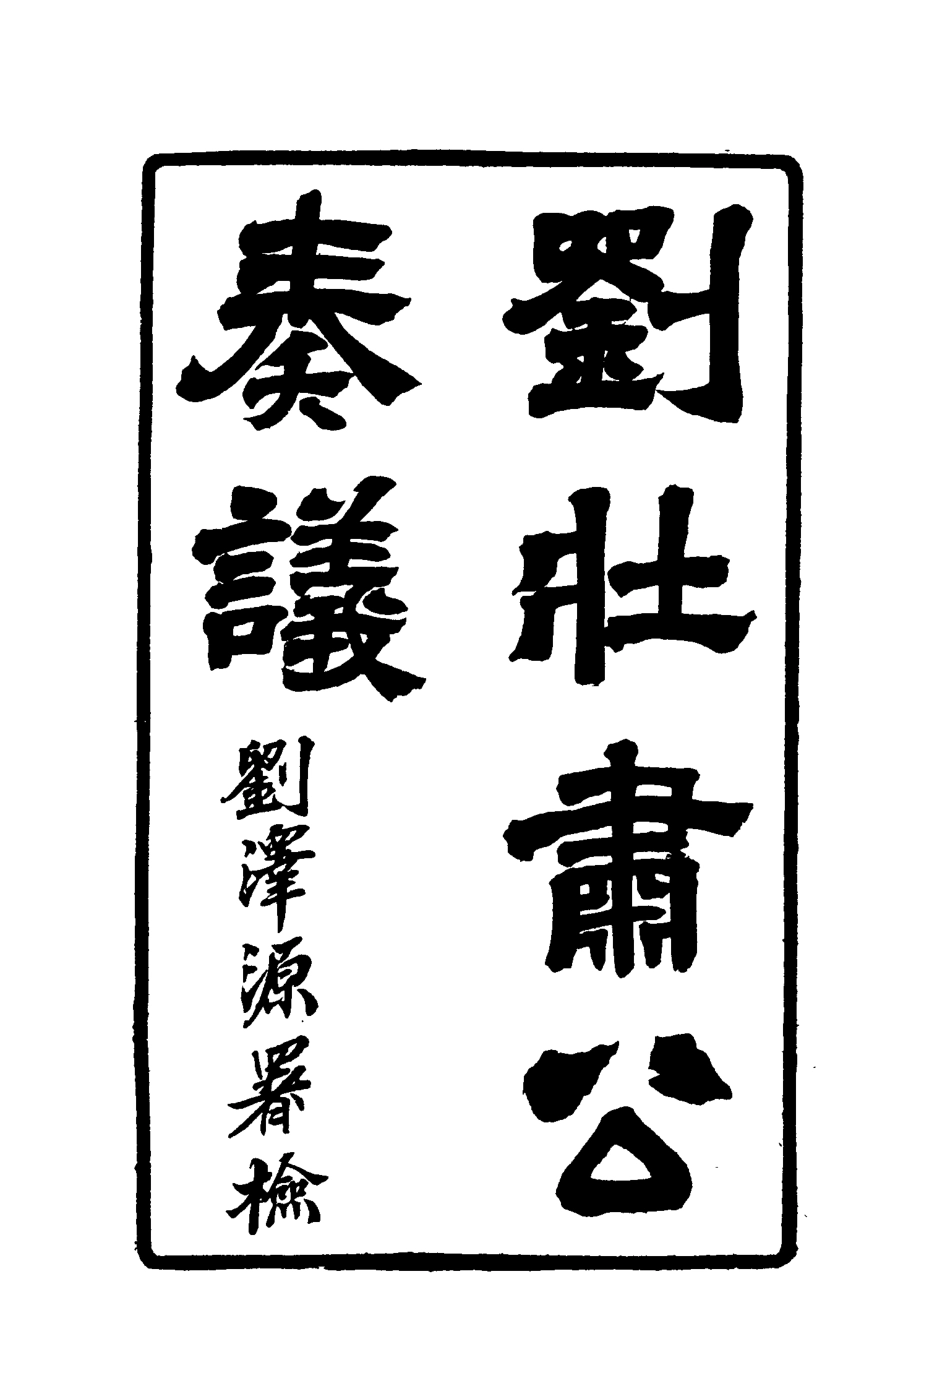 劉壯肅公
奏議
劉澤源署檢